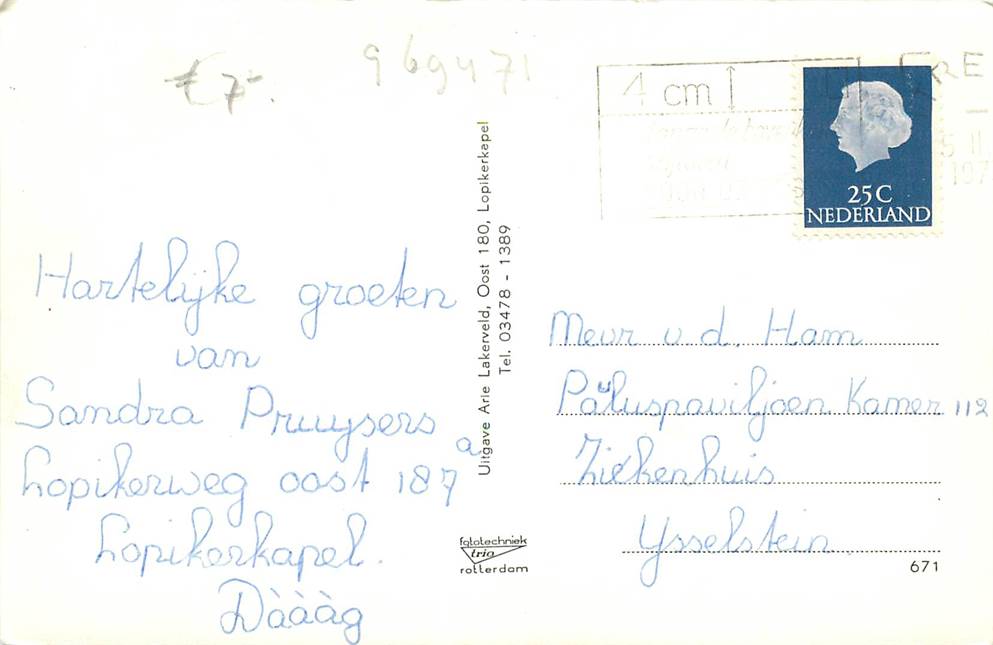 € 7-
969471
4 cm
25 C
NEDERLAND
Hartelijke groeten
van
Sandra Pruijsers
Lopikerweg oost 187 a
Lopikerkapel.
Dàààg
Uitgave Arie Lakerveld, Oost 180, Lopikerkapel
Tel. 03478 - 1389
fototechniek
trio
rotterdam
Mevr v.d. Ham
Pauluspaviljoen Kamer 112
Ziekenhuis
Ysselstein.
671